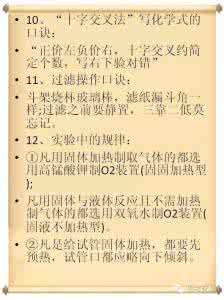 10、“十字交叉法”写化学式的
口诀:
“正价左负价右，十字交叉约简
定个数，写右下验对错”
11、过滤操作口诀:
斗架烧杯玻璃棒，滤纸漏斗角一
样;过滤之前要静置，三靠二低莫
忘记。
12、实验中的规律:
①凡用固体加热制取气体的都选
用高锰酸钾制O2装置(固固加热型
);
凡用固体与液体反应且不需加热
制气体的都选用双氧水制O2装置(
固液不加热型)。
②凡是给试管固体加热，都要先
预热，试管口都应略向下倾斜。